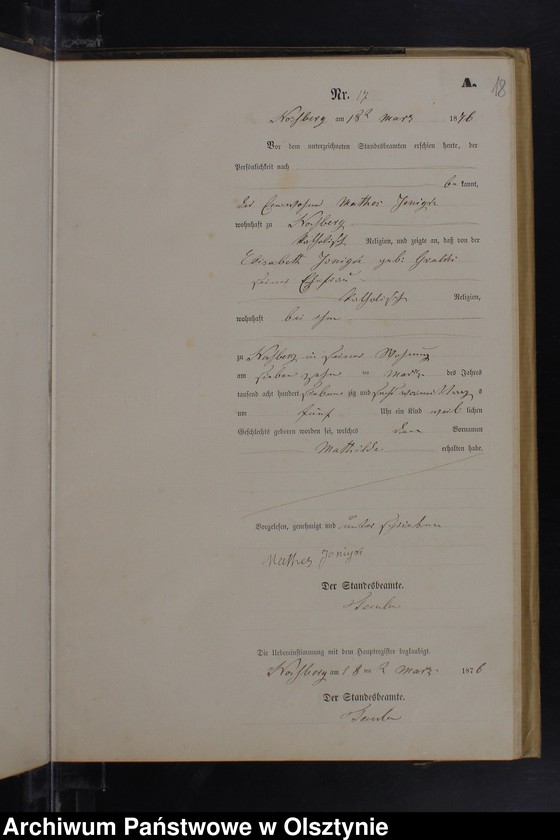 A. 18
Nr. 17
am 18 März 1876
Vor dem unterzeichneten Standesbeamten erschien heute, der
Persönlichkeit nach
be kannt,
der Einwohner Mathes
wohnhaft zu
katholischer Religion, und zeigte an, daß von der
Elisabeth geb:
seiner Ehefrau
katholischer Religion,
wohnhaft bei ihm
zu in seiner Wohnung
am sieben zehn ten März des Jahres
tausend acht hundert sieben zig und sechs
um fünf Uhr ein Kind weib lichen
Geschlechts geboren worden sei, welches den Vornamen
Mathilde erhalten habe.
Vorgelesen, genehmigt und unterschrieben
Mathes
Der Standesbeamte.
Die Uebereinstimmung mit dem Hauptregister beglaubigt.
am 18 März 1876
Der Standesbeamte.
Archiwum Państwowe w Olsztynie